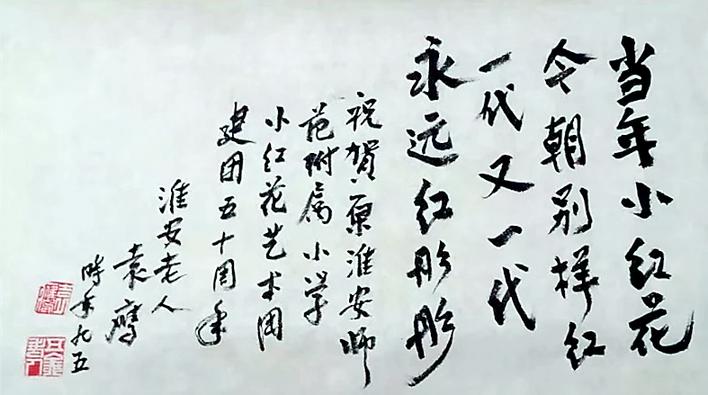 当年小红花
今朝别样红
一代又一代
永远红彤彤
祝贺原淮安师
范附属小学
小红花艺术团
建团五十周年
淮安老人
袁鹰
时年九五